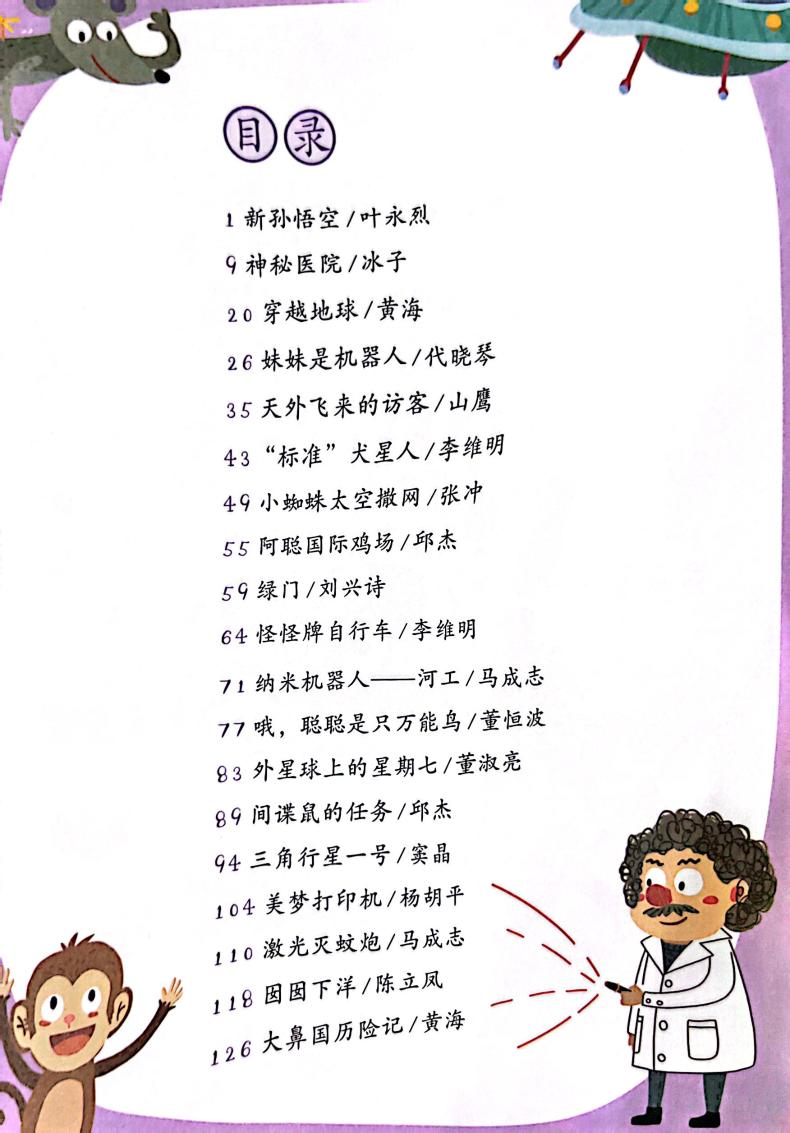 目录
1 新孙悟空/叶永烈
9 神秘医院/冰子
20 穿越地球/黄海
26 妹妹是机器人/代晓琴
35 天外飞来的访客/山鹰
43 “标准”犬星人/李维明
49 小蜘蛛太空撒网/张冲
55 阿聪国际鸡场/邱杰
59 绿门/刘兴诗
64 怪怪牌自行车/李维明
71 纳米机器人——河工/马成志
77 哦，聪聪是只万能鸟/董恒波
83 外星球上的星期七/董淑亮
89 间谍鼠的任务/邱杰
94 三角行星一号/窦晶
104 美梦打印机/杨胡平
110 激光灭蚊炮/马成志
118 囡囡下洋/陈立凤
126 大鼻国历险记/黄海